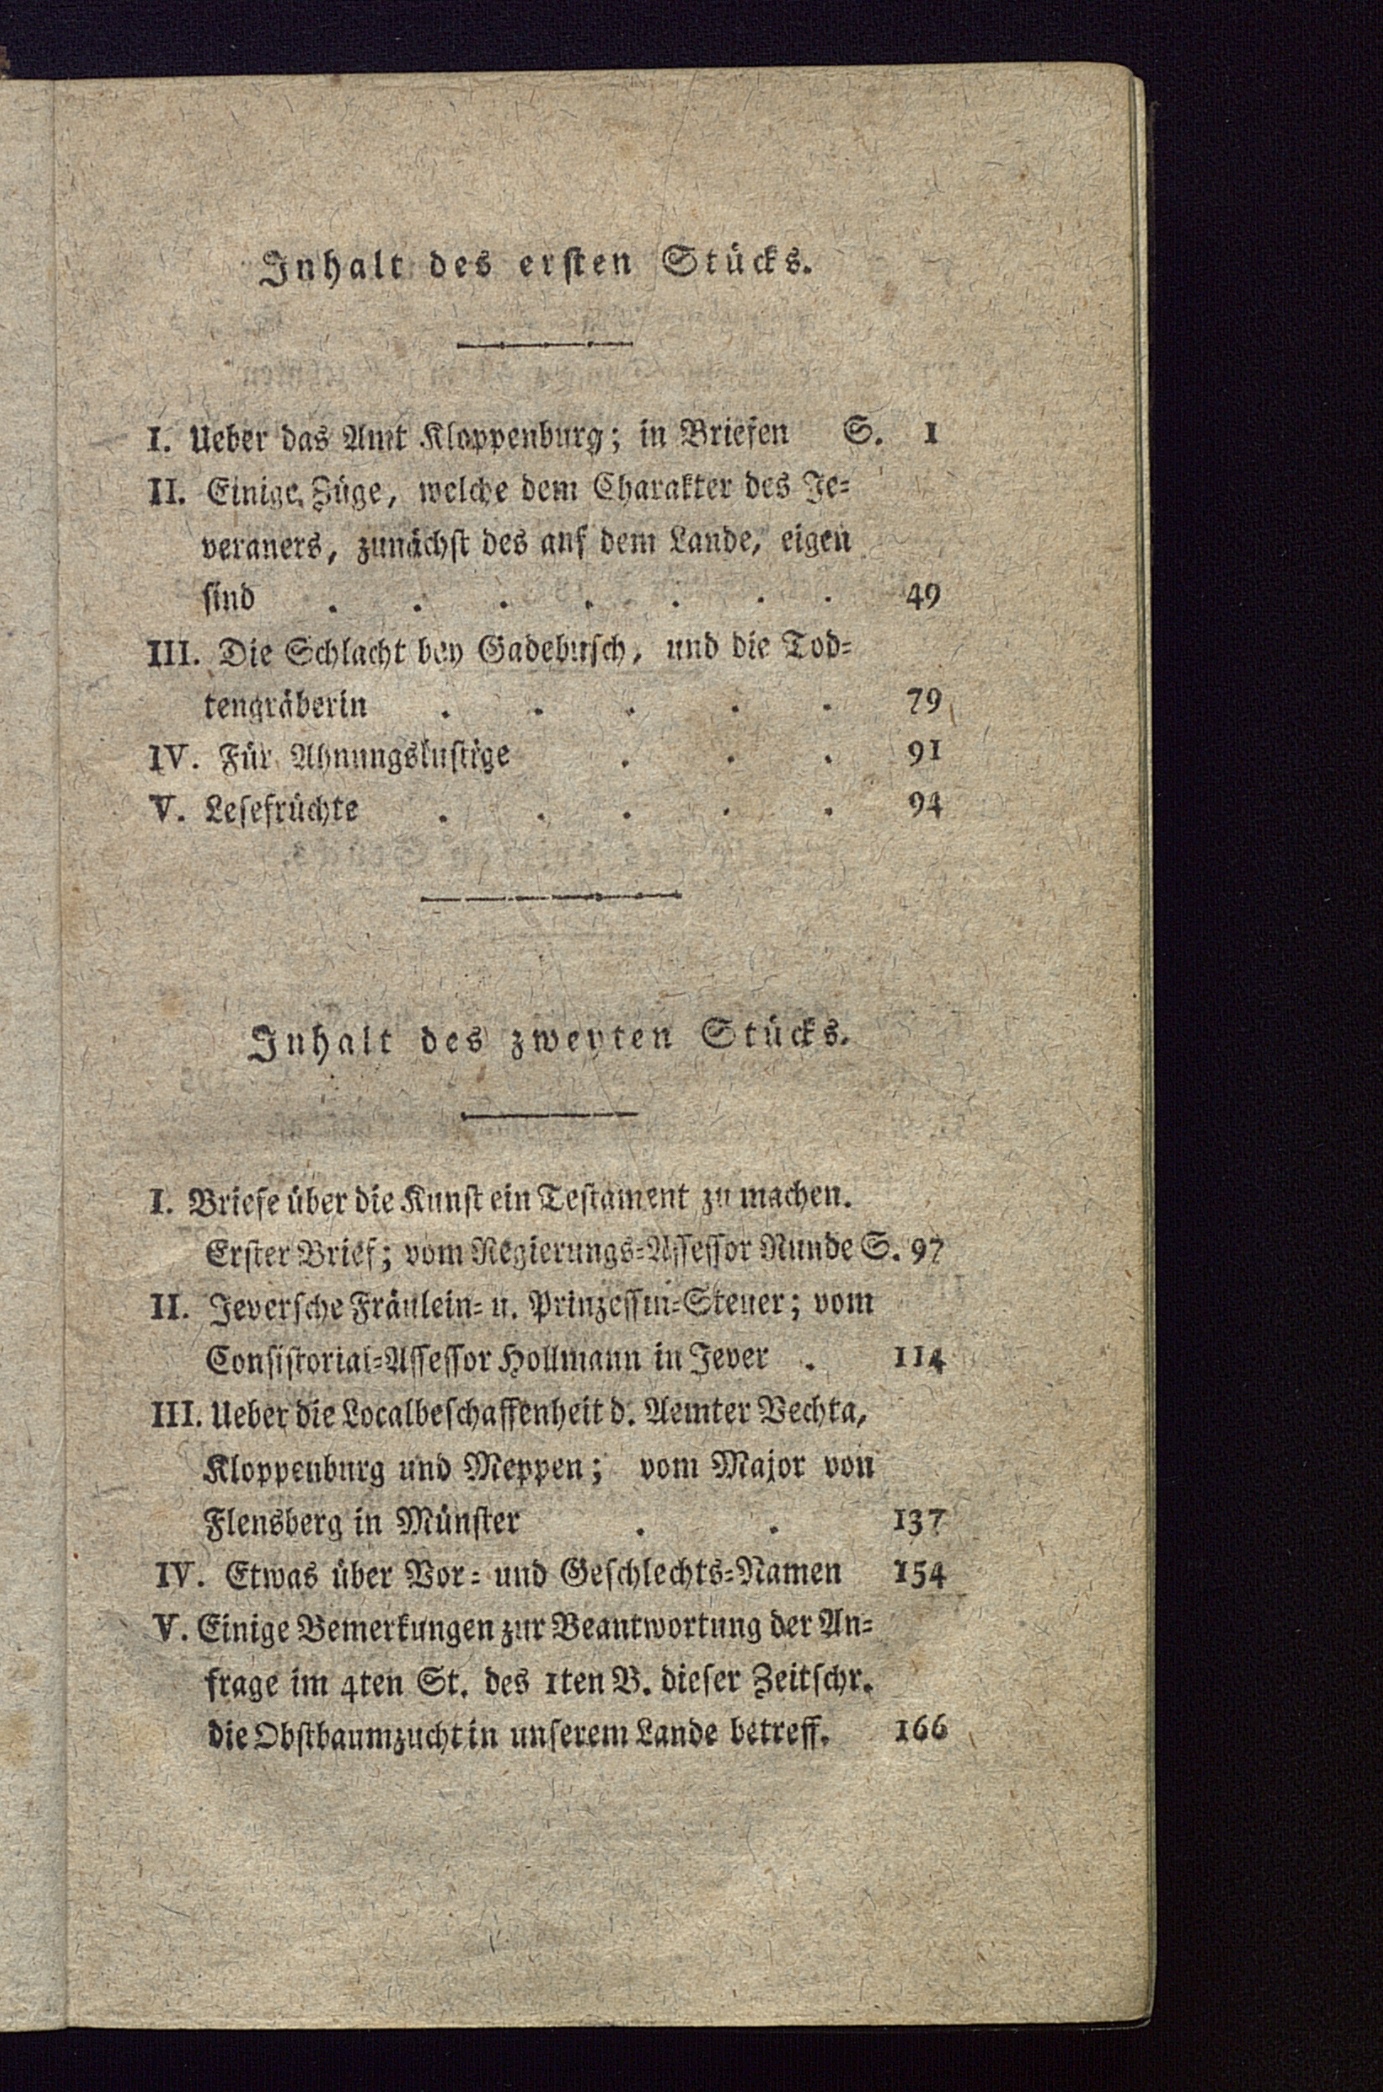 Inhalt des ersten Stücks.
I. Ueber das Amt Kloppenburg; in Briefen S. 1
II. Einige Züge, welche dem Charakter des Je-
veraners, zunächst des auf dem Lande, eigen
sind . . . . . . . 49
III. Die Schlacht bey Gadebusch, und die Tod-
tengräberin . . . . . 79
IV. Für Ahnungslustige . . . 91
V. Lesefrüchte . . . . . 94
Inhalt des zweyten Stücks.
I. Briefe über die Kunst ein Testament zu machen.
Erster Brief; vom Regierungs-Assessor Runde S. 97
II. Jeversche Fräulein- u. Prinzessin-Steuer; vom
Consistorial-Assessor Hollmann in Jever . 114
III. Ueber die Localbeschaffenheit d. Aemter Vechta,
Kloppenburg und Meppen; vom Major von
Flensberg in Münster . . 137
IV. Etwas über Vor- und Geschlechts-Namen 154
V. Einige Bemerkungen zur Beantwortung der An-
frage im 4ten St. des 1ten B. dieser Zeitschr.
die Obstbaumzucht in unserem Lande betreff. 166